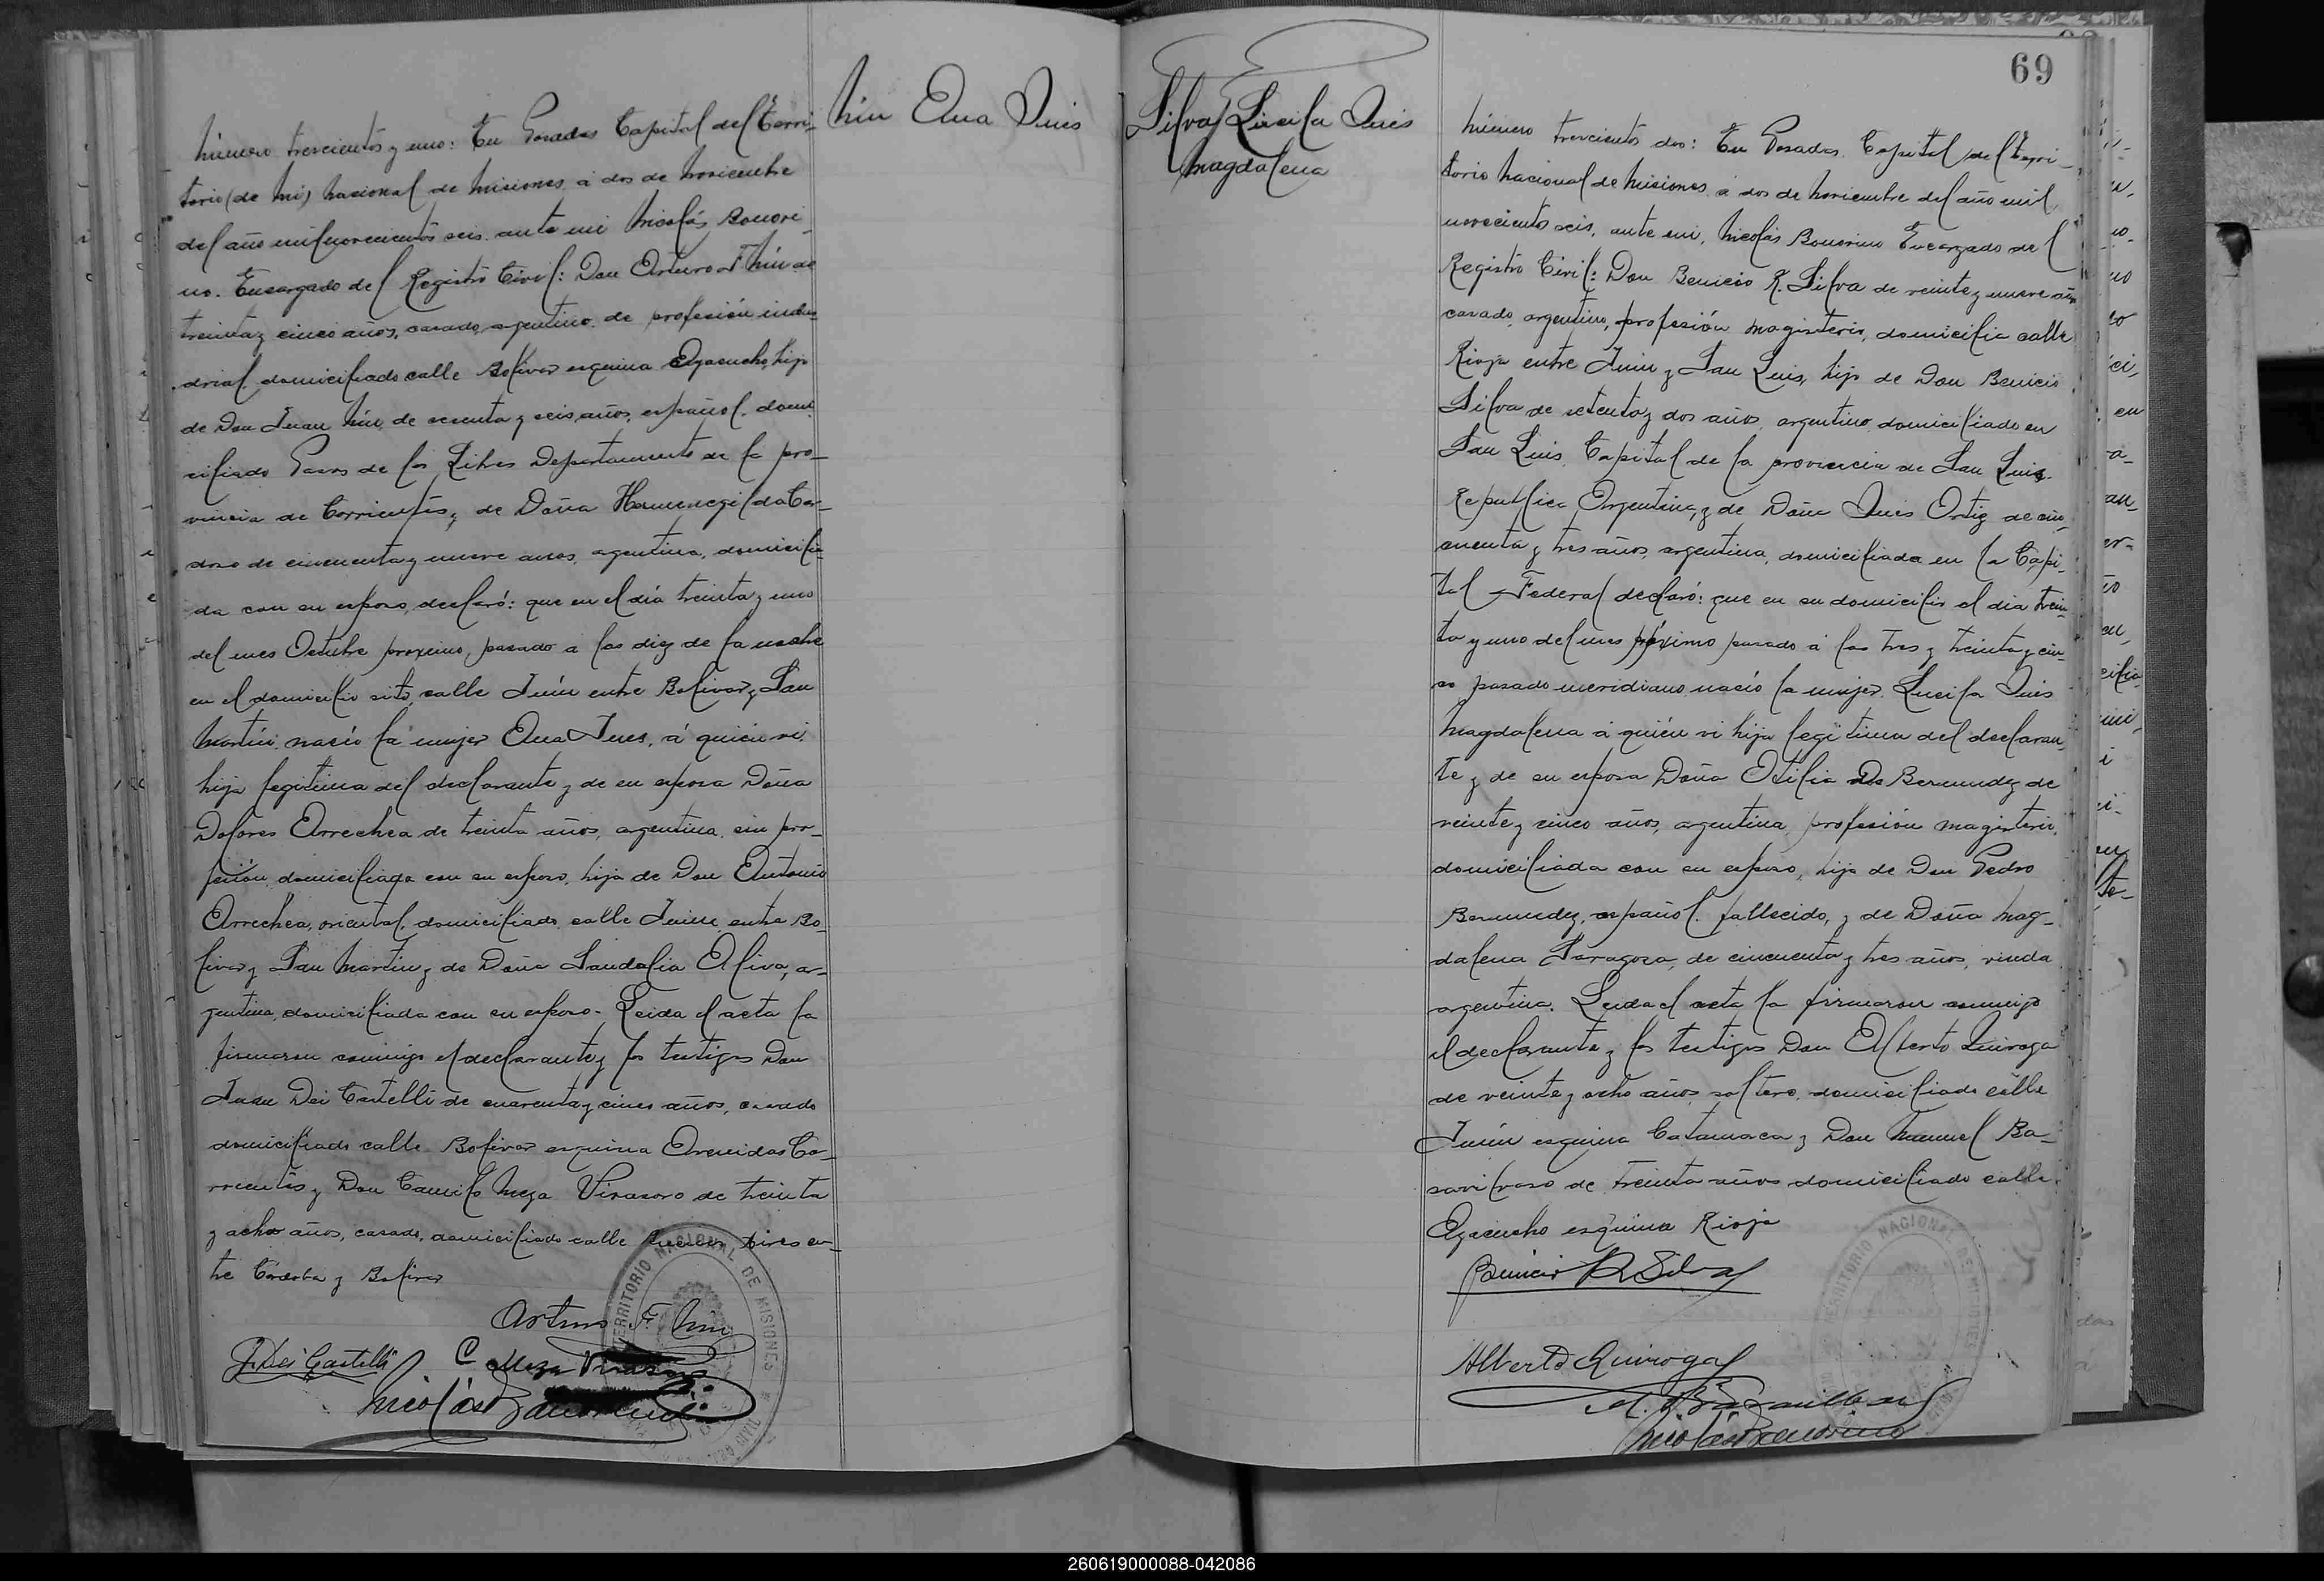 Niu Ana Ines
Número trescientos y uno: En Posadas Capital del Terri-
torio (de Mi) Nacional de Misiones á dos de Noviembre
del año mil novecientos seis. ante mi Nicolás Bonori-
no. Encargado del Registro Civil: Don Arturo F. Niu de
treinta y cinco años, casado, argentino. de profesión indus-
trial, domiciliado calle Bolivar esquina Ayacucho, hijo
de Don Juan Niu, de sesenta y seis años, español. domi-
ciliado Pasos de los Libres Departamento de la pro-
vincia de Corrientes, y de Doña Hermenegilda Car-
doso de cincuenta y nueve años, argentina, domicilia-
da con su esposo, declaró: que en el día treinta y uno
del mes Octubre proximo, pasado á las diez de la noche
en el domicilio sito, calle Junín entre Bolivar y San
Martín. nació la mujer Ana Ines, á quién vi.
hija legítima del declarante y de su esposa Doña
Dolores Arrechea de treinta años, argentina, sin pro-
fesión, domiciliada con su esposo, hija de Don Antonio
Arrechea, oriental, domiciliado calle Junin entre Bo-
livar y San Martin y de Doña Sandalia Oliva, ar-
gentina, domiciliada con su esposo. Leida el acta la
firmaron conmigo el declarante y los testigos Don
Juan Dei Castelli de cuarenta y cinco años, casado
domiciliado calle Bolivar esquina Avenidas Co-
rrientes y Don Camilo Meza Virasoro de treinta
y ocho años, casado, domiciliado calle Buenos Aires en-
tre Córdoba y Bolivar
Arturo F. Niu
J. Dei Castelli C Meza Virasoro
Nicolás Bonorino
TERRITORIO NACIONAL DE MISIONES
69
Silva, Lucila Ines
Magdalena
Número trescientos dos: En Posadas. Capital del Terri-
torio Nacional de Misiones á dos de Noviembre del año mil
novecientos seis, ante mi, Nicolás Bonorino Encargado del
Registro Civil: Don Benicio R. Silva de veinte y nueve años
casado, argentino, profesión magisterio, domicilia calle
Rioja entre Junin y San Luis, hijo de Don Benicio
Silva de setenta y dos años, argentino domiciliado en
San Luis, Capital de la provincia de San Luis.
Republica Argentina, y de Doña Ines Ortiz de cin-
cuenta y tres años, argentina, domiciliada en la Capi-
tal Federal declaró: que en su domicilio el dia trein-
ta y uno del mes próximo pasado á las tres y treinta y cin-
co pasado meridiano nació la mujer Lucila Ines
Magdalena á quién vi hija legitima del declaran-
te y de su esposa Doña Otilia De Bermudez de
veinte y cinco años, argentina, profesión magisterio,
domiciliada con su esposo, hija de Don Pedro
Bermudez, español. fallecido, y de Doña Mag-
dalena Zaragoza, de cincuenta y tres años, viuda
argentina. Leida el acta la firmaron conmigo
el declarante y los testigos Don Alberto Quiroga
de veinte y ocho años soltero, domiciliado calle
Junín esquina Catamarca y Don Manuel Ba-
savilbaso de treinta años domiciliado calle
Ayacucho esquina Rioja
Benicio R Silva
Alberto Quiroga
M. Basavilbaso
Nicolás Bonorino
TERRITORIO NACIONAL DE MISIONES
260619000088-042086